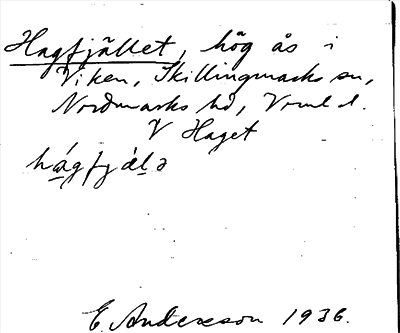 Hagfjället, hög ås i
Viken, Skillingmarks sn,
Nordmarks hd, Vrml l.
V Haget
hágfjälə
E. Andersson 1936.